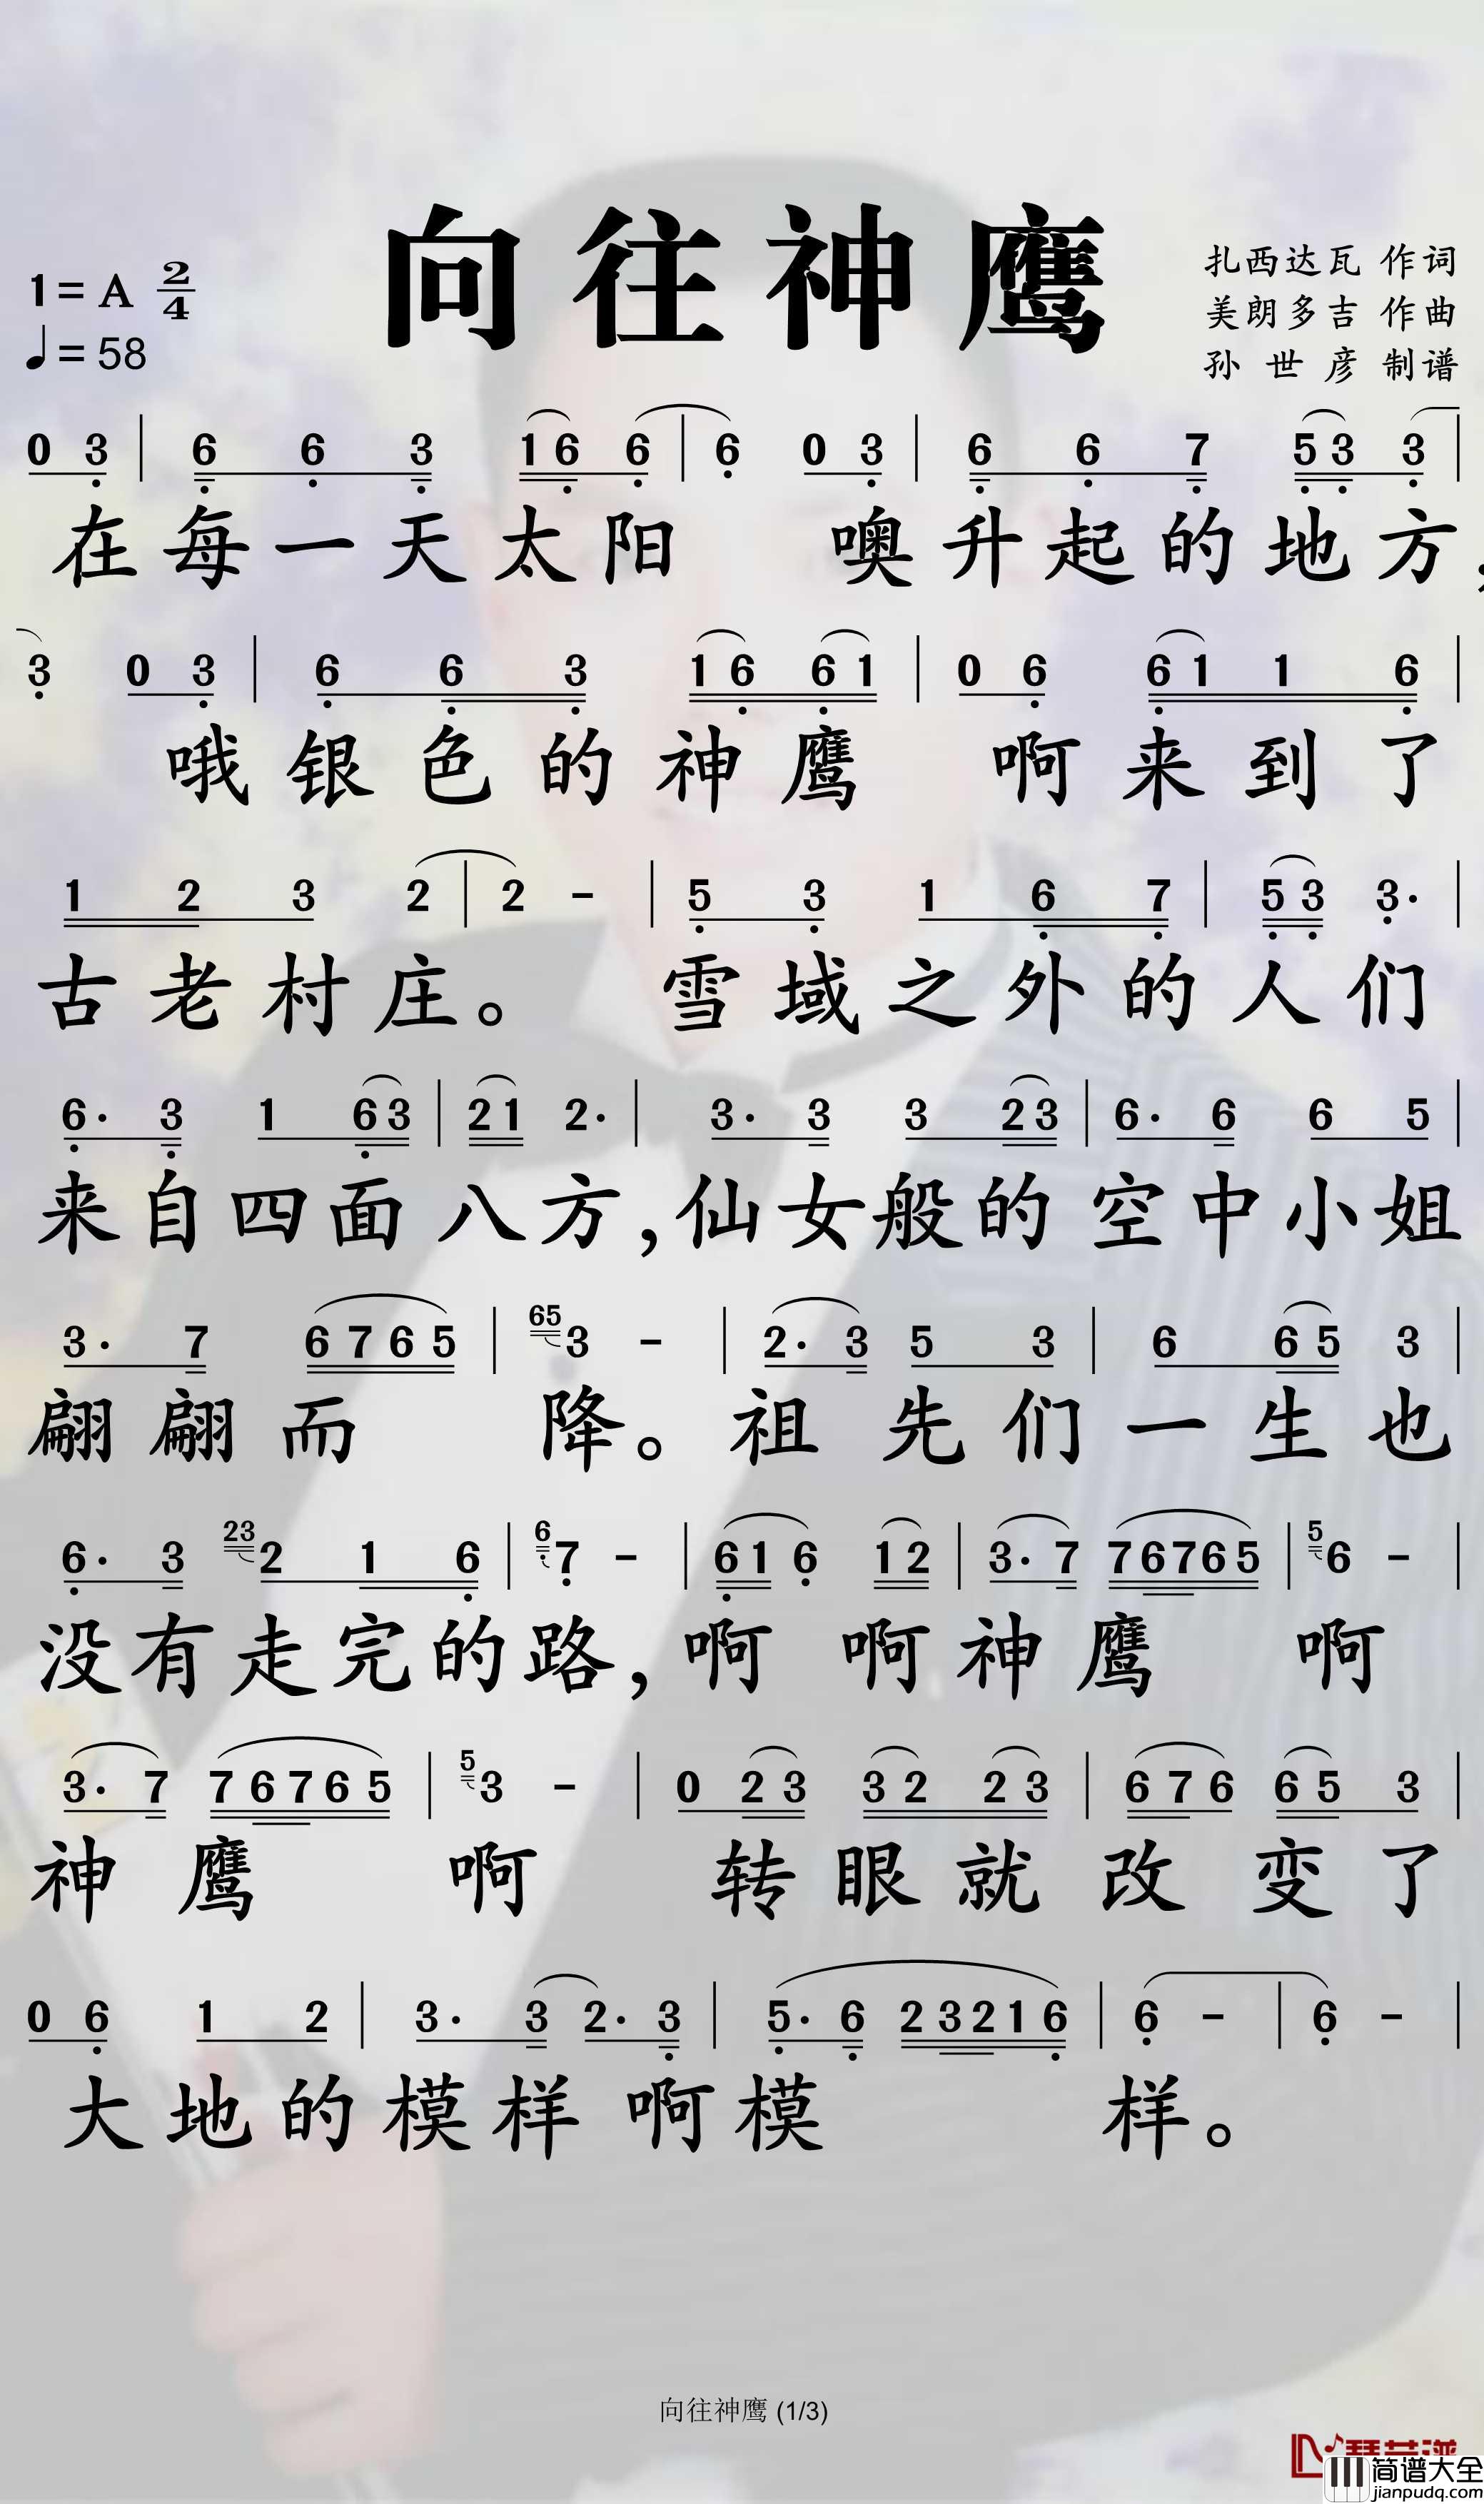 向往神鹰
1=A 2/4
♩=58
扎西达瓦 作词
美朗多吉 作曲
孙世彦 制谱
0 3 | 6 6 3 1 6 6 | 6 0 3 | 6 6 7 5 3 3 |
在每一天太阳 噢升起的地方,
3 0 3 | 6 6 3 1 6 6 1 | 0 6 6 1 1 6 |
哦银色的神鹰 啊来到了
1 2 3 2 | 2 - | 5 3 1 6 7 | 5 3 3· |
古老村庄。 雪域之外的人们
6· 3 1 6 3 | 2 1 2· | 3· 3 3 2 3 | 6· 6 6 5 |
来自四面八方,仙女般的空中小姐
3· 7 6 7 6 5 | 65 3 - | 2· 3 5 3 | 6 6 5 3 |
翩翩而 降。祖先们一生也
6· 3 23 2 1 6 | 6 7 - | 6 1 6 1 2 | 3· 7 7 6 7 6 5 | 5 6 - |
没有走完的路,啊 啊神鹰 啊
3· 7 7 6 7 6 5 | 5 3 - | 0 2 3 3 2 2 3 | 6 7 6 6 5 3 |
神鹰 啊 转眼就改变了
0 6 1 2 | 3· 3 2· 3 | 5· 6 2 3 2 1 6 | 6 - | 6 - |
大地的模样 啊模 样。
向往神鹰 (1/3)
简谱大全
jianpudq.com